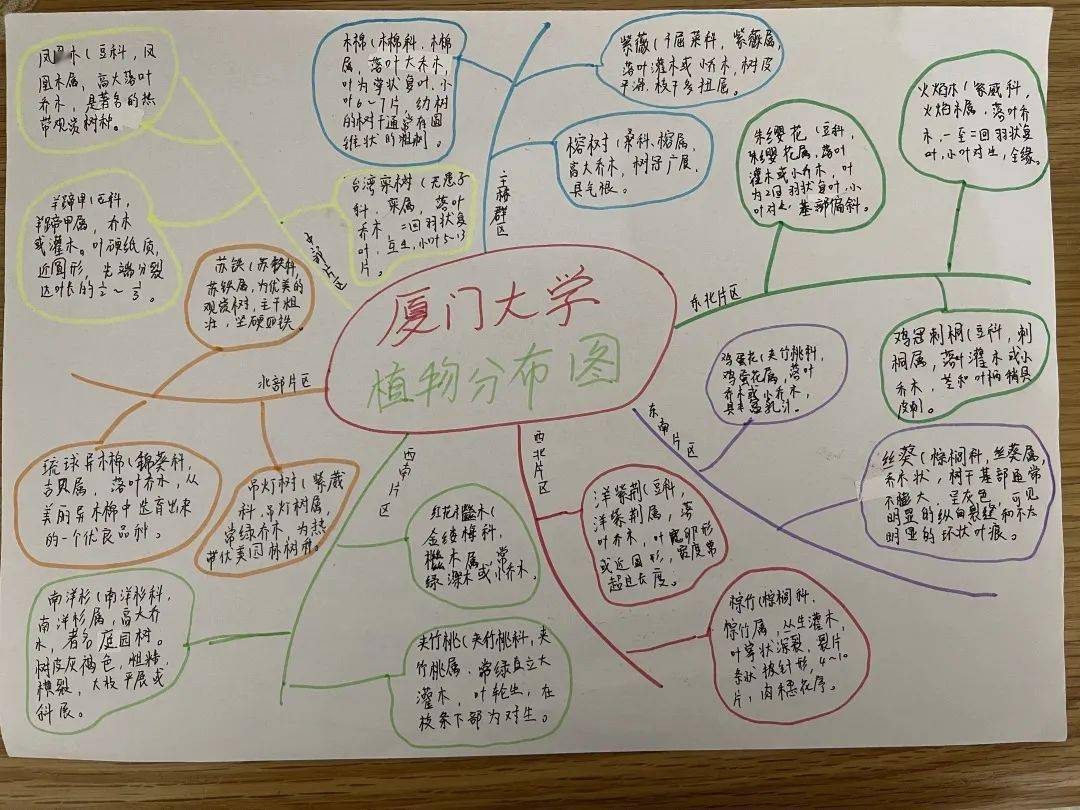 厦门大学
植物分布图
中部片区
凤凰木(豆科,凤
凰木属,高大落叶
乔木,是著名的热
带观赏树种。
羊蹄甲(豆科,
羊蹄甲属,乔木
或灌木。叶硬纸质,
近圆形,先端分裂
达叶长的1/2~1/3。
台湾栾树(无患子
科、栾属,落叶
乔木,二回羽状复
叶,互生,小叶5-13
片。
主楼群区
木棉(木棉科、木棉
属,落叶大乔木,
叶为掌状复叶,小
叶6~7片,幼树
的树干通常有圆
锥状的粗刺。
紫薇(千屈菜科,紫薇属,
落叶灌木或小乔木,树皮
平滑,枝干多扭屈。
榕树(桑科、榕属,
高大乔木,树冠广展,
具气根。
东北片区
朱缨花(豆科,
朱缨花属,落叶
灌木或小乔木,叶
为2回羽状复叶,小
叶对生,基部偏斜。
火焰木(紫葳科,
火焰木属,落叶乔
木,一至二回羽状复
叶,小叶对生,全缘。
鸡冠刺桐(豆科,刺
桐属,落叶灌木或小
乔木,茎和叶柄稍具
皮刺。
东南片区
鸡蛋花(夹竹桃科,
鸡蛋花属,落叶
乔木或小乔木,
具丰富乳汁。
丝葵(棕榈科,丝葵属,
乔木状,树干基部通常
不膨大,呈灰色,可见
明显的纵向裂缝和不太
明显的环状叶痕。
西北片区
洋紫荆(豆科,
洋紫荆属,落
叶乔木,叶宽卵形
或近圆形,宽度常
超过长度。
棕竹(棕榈科、
棕竹属,丛生灌木,
叶掌状深裂,裂片
条状披针形,4~10
片,肉穗花序。
西南片区
红花檵木(
金缕梅科,
檵木属,常
绿灌木或小乔木。
夹竹桃(夹竹桃科,夹
竹桃属,常绿直立大
灌木,叶轮生,在
枝条下部为对生。
南洋杉(南洋杉科,
南洋杉属,高大乔
木,著名庭园树。
树皮灰褐色,粗糙,
横裂,大枝平展或
斜展。
北部片区
苏铁(苏铁科,
苏铁属,为优美的
观赏树,主干粗
壮,坚硬如铁。
琉球异木棉(锦葵科,
吉贝属,落叶乔木,从
美丽异木棉中选育出来
的一个优良品种。
吊灯树(紫葳
科,吊灯树属,
常绿乔木,为热
带优美园林树种。